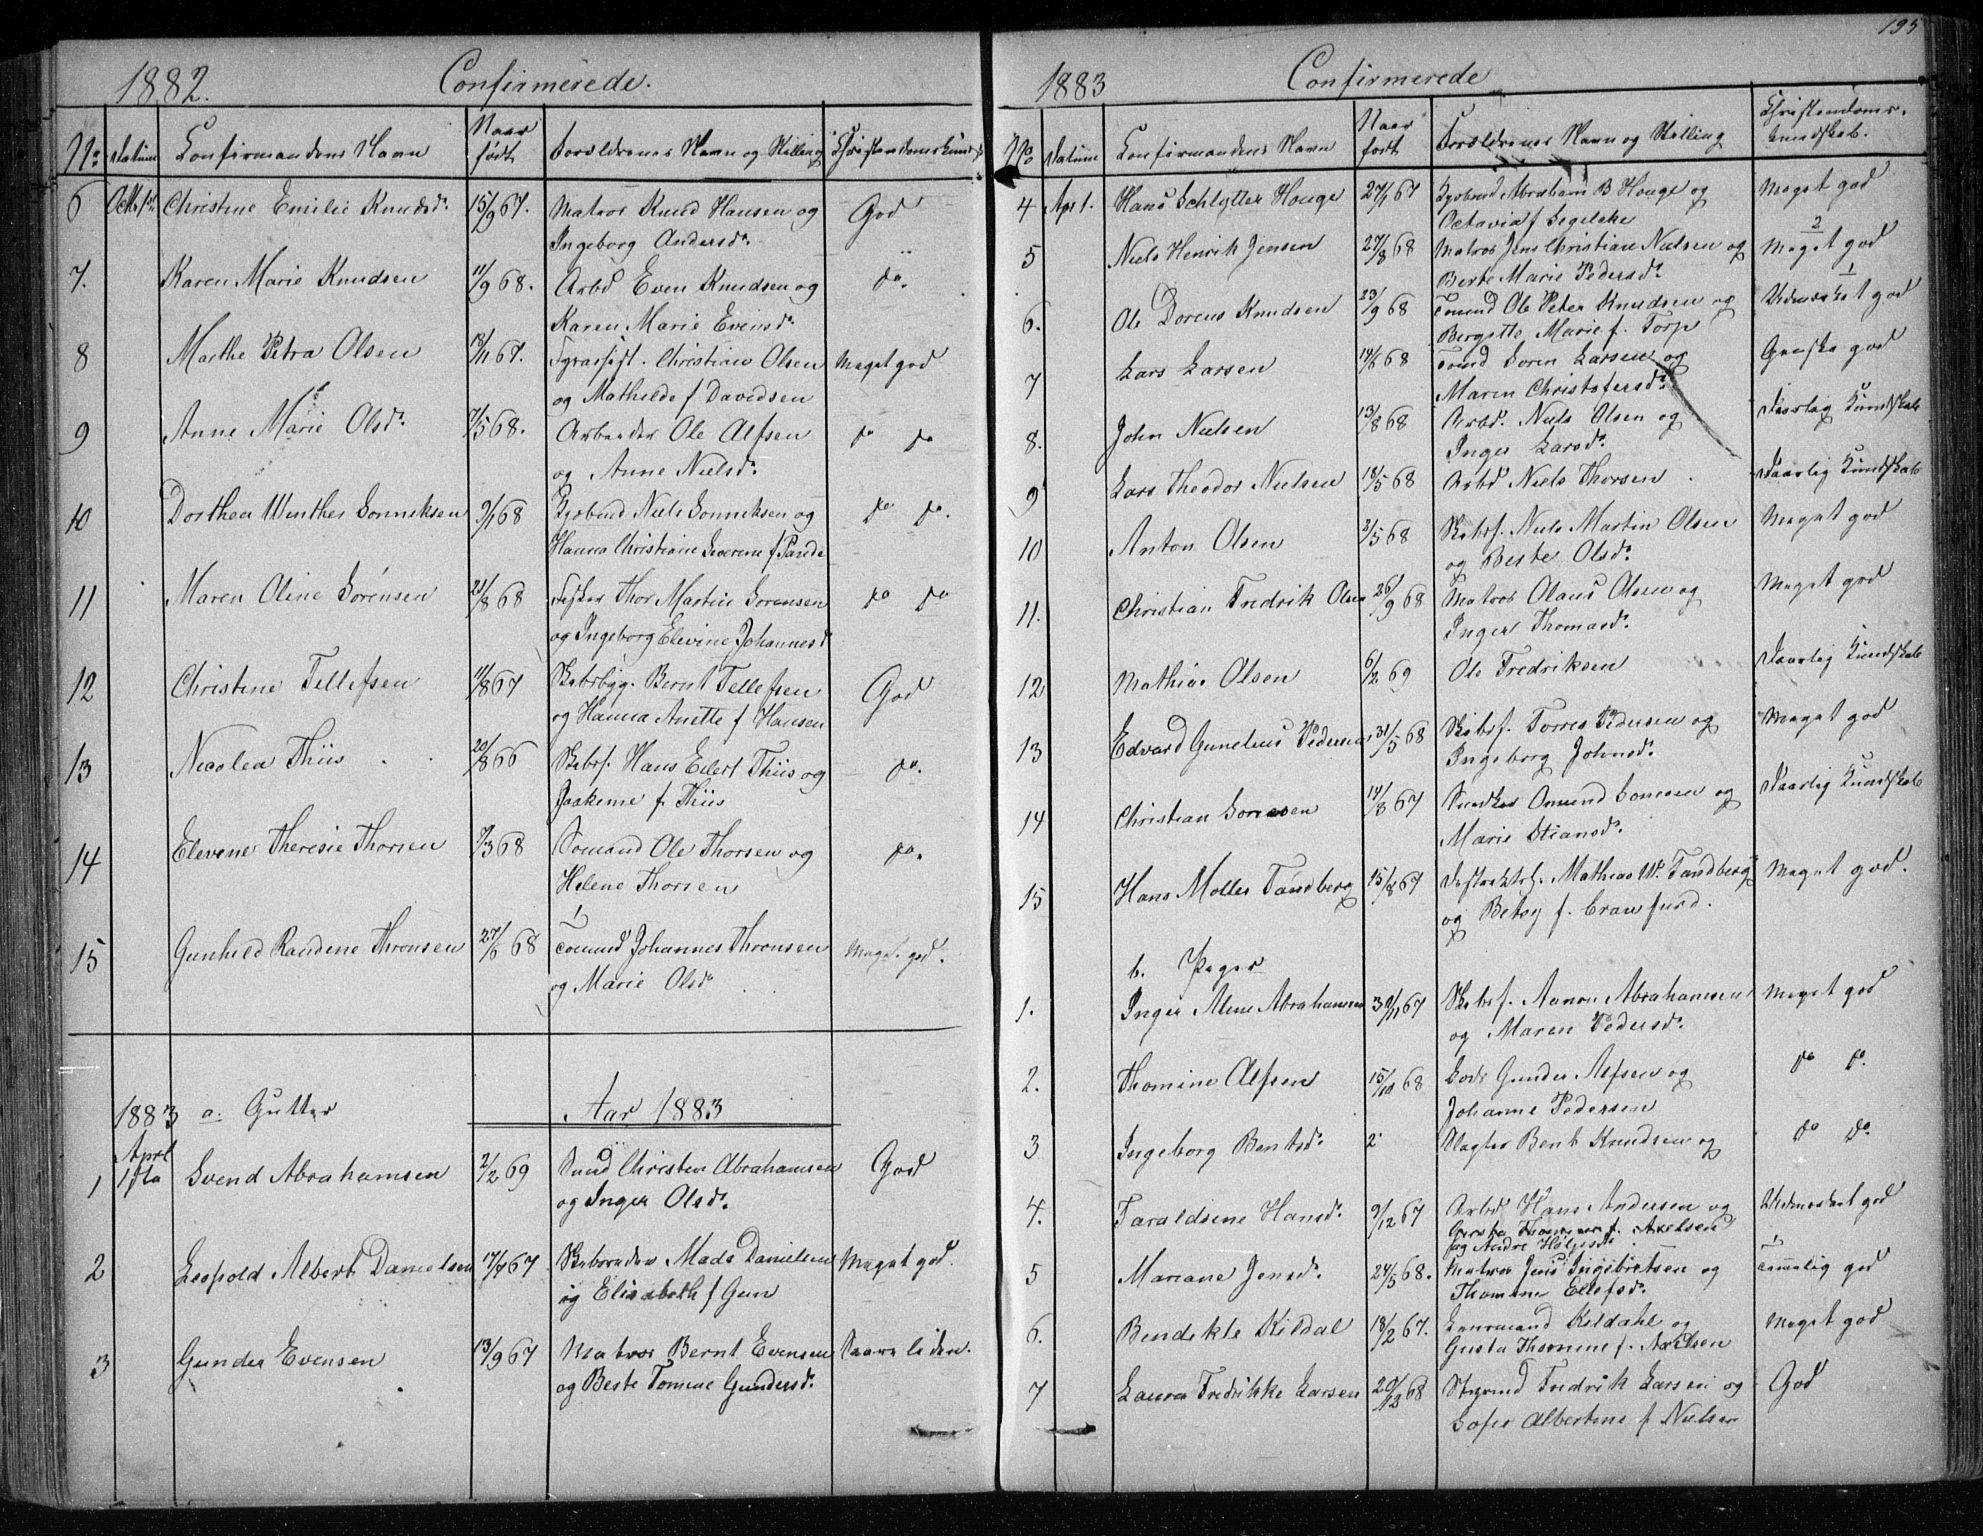 1882. Confirmerede.
No Datum Confirmandens Navn Naar født Forældrenes Navn og Stilling Christendomskundsk
6 Christine Emilie Knudsdr 15/9 67. Matros Knud Hansen og God
Ingeborg Andersdr
7. Karen Marie Knudsen 11/9 68. Arbd Even Knudsen og do.
Karen Marie Evensdr
8 Marthe Petra Olsen 18/11 67. Christian Olsen Meget god
og Mathilde f Davidsen
9 Anne Marie Olsdr 7/5 68. Arbeider Ole Alfsen do do
og Anne Nielsdr
10 Dorthea Winther Sonneksen 9/1 68 Niels Sonneksen og do do.
Hanna Christiane Severine f Pande
11 Maren Oline Sørensen 21/8 68 Fisker Thor Martin Sorensen do do
og Ingeborg Elevine Johannesd
12 Christine Tellefsen 11/8 67 Skibsbyg. Bernt Tellefsen God
og Hanna Anette f Hansen
13 Nicolea Thiis 20/8 66 Skibsf. Hans Edert Thiis og do.
Joakime f. Thiis
14 Elevene Theresie Thorsen 7/3 68 Somand Ole Thorsen og do.
Helene Thorsen
15 Gunhild Randene Thronsen 27/6 68 Tomand Johannes Thronsen Meget god.
og Marie Olsdr
1883 a. Gutter Aar 1883
Aprl
1 1sta Svend Abrahamsen 2/2 69 Christen Abrahamsen God
og Inger Olsdr.
2 Leopold Albert Danielsen 17/7 67 Mads Danielsen Meget god.
og Elisabeth f Gun
3 Gunder Evensen 13/9 67 Matros Bernt Evensen
og Beste Tomine Gundersdr.
195
1883 Confirmerede
No Datum Confirmandens Navn Naar født Forældrenes Navn og Stilling Christendoms-
kundskab.
4 Apr 1. Hans Schlytter Houge 27/1 67 Abraham B Houge og Meget god
Octavia f Segelcke
5 Niels Henrik Jensen 27/8 68 Matros Jens Christian Nielsen og Meget god
Berte Marie Pedersdr.
6. Ole Dorens Knudsen 23/9 68 Tomd Ole Peter Knudsen og Udmærket god
Bergitte Marie f. Torp
7 Lars Larsen 14/6 68 Tomd Soren Larsen og Ganske god
Maren Christofersdr.
8. John Nielsen 13/8 68 Arbd. Niels Olsen og Daarlig Kundskab
Inger Larsdr.
9 Lars Theodor Nielsen 18/5 68 Arbd Niels Thorsen Daarlig Kundskab
10 Anton Olsen 3/5 68 Skibsf. Niels Martin Olsen Meget god
og Beste Olsdr.
11. Christian Fredrik Olsen 26/9 68 Matros Olaus Olsen og Meget god
Inger Thomasdr.
12 Mathias Olsen 6/2 69 Ole Fredriksen Daarlig Kundskab
13 Edvard Gunelius Pedersen 31/5 68 Skibsf. Torres Pedersen og Meget god
Ingeborg Johnsdr.
14 Christian Sorensen 14/8 67 Omund Sorensen og Daarlig Kundskab
Marie Stiansdr.
15 Hans Moller Tandberg 15/8 67 Mathias W. Tandberg Meget god.
og Betsy f. Crawfurd.
b. Piger
1. Inger Alene Abrahamsen 30/11 67 Skibsf. Aanon Abrahamsen Meget god
og Maren Pedersdr.
2. Thomine Alfsen 15/10 68 Lods Gunder Alfsen og do do.
Johanne Pedersen
3 Ingeborg Bentsdr. 2 Slagter Bent Knudsen og do do.
4. Taraldsine Hansdr. 9/12 67 Arbd Hans Andersen og Udmærket god
5 Mariane Jensdr. 24/5 68. Matros Jens Ingebretsen og temmelig god
Thomine Ellefsdr.
6. Bendikte Kildal 18/2 67. Lensmand Kildahl og Meget god
Gusta Thomine f. Axelsen
7 Laura Fredrikke Larsen 20/12 68 Fredrik Larsen og God
Sofie Albertine f Nielsen